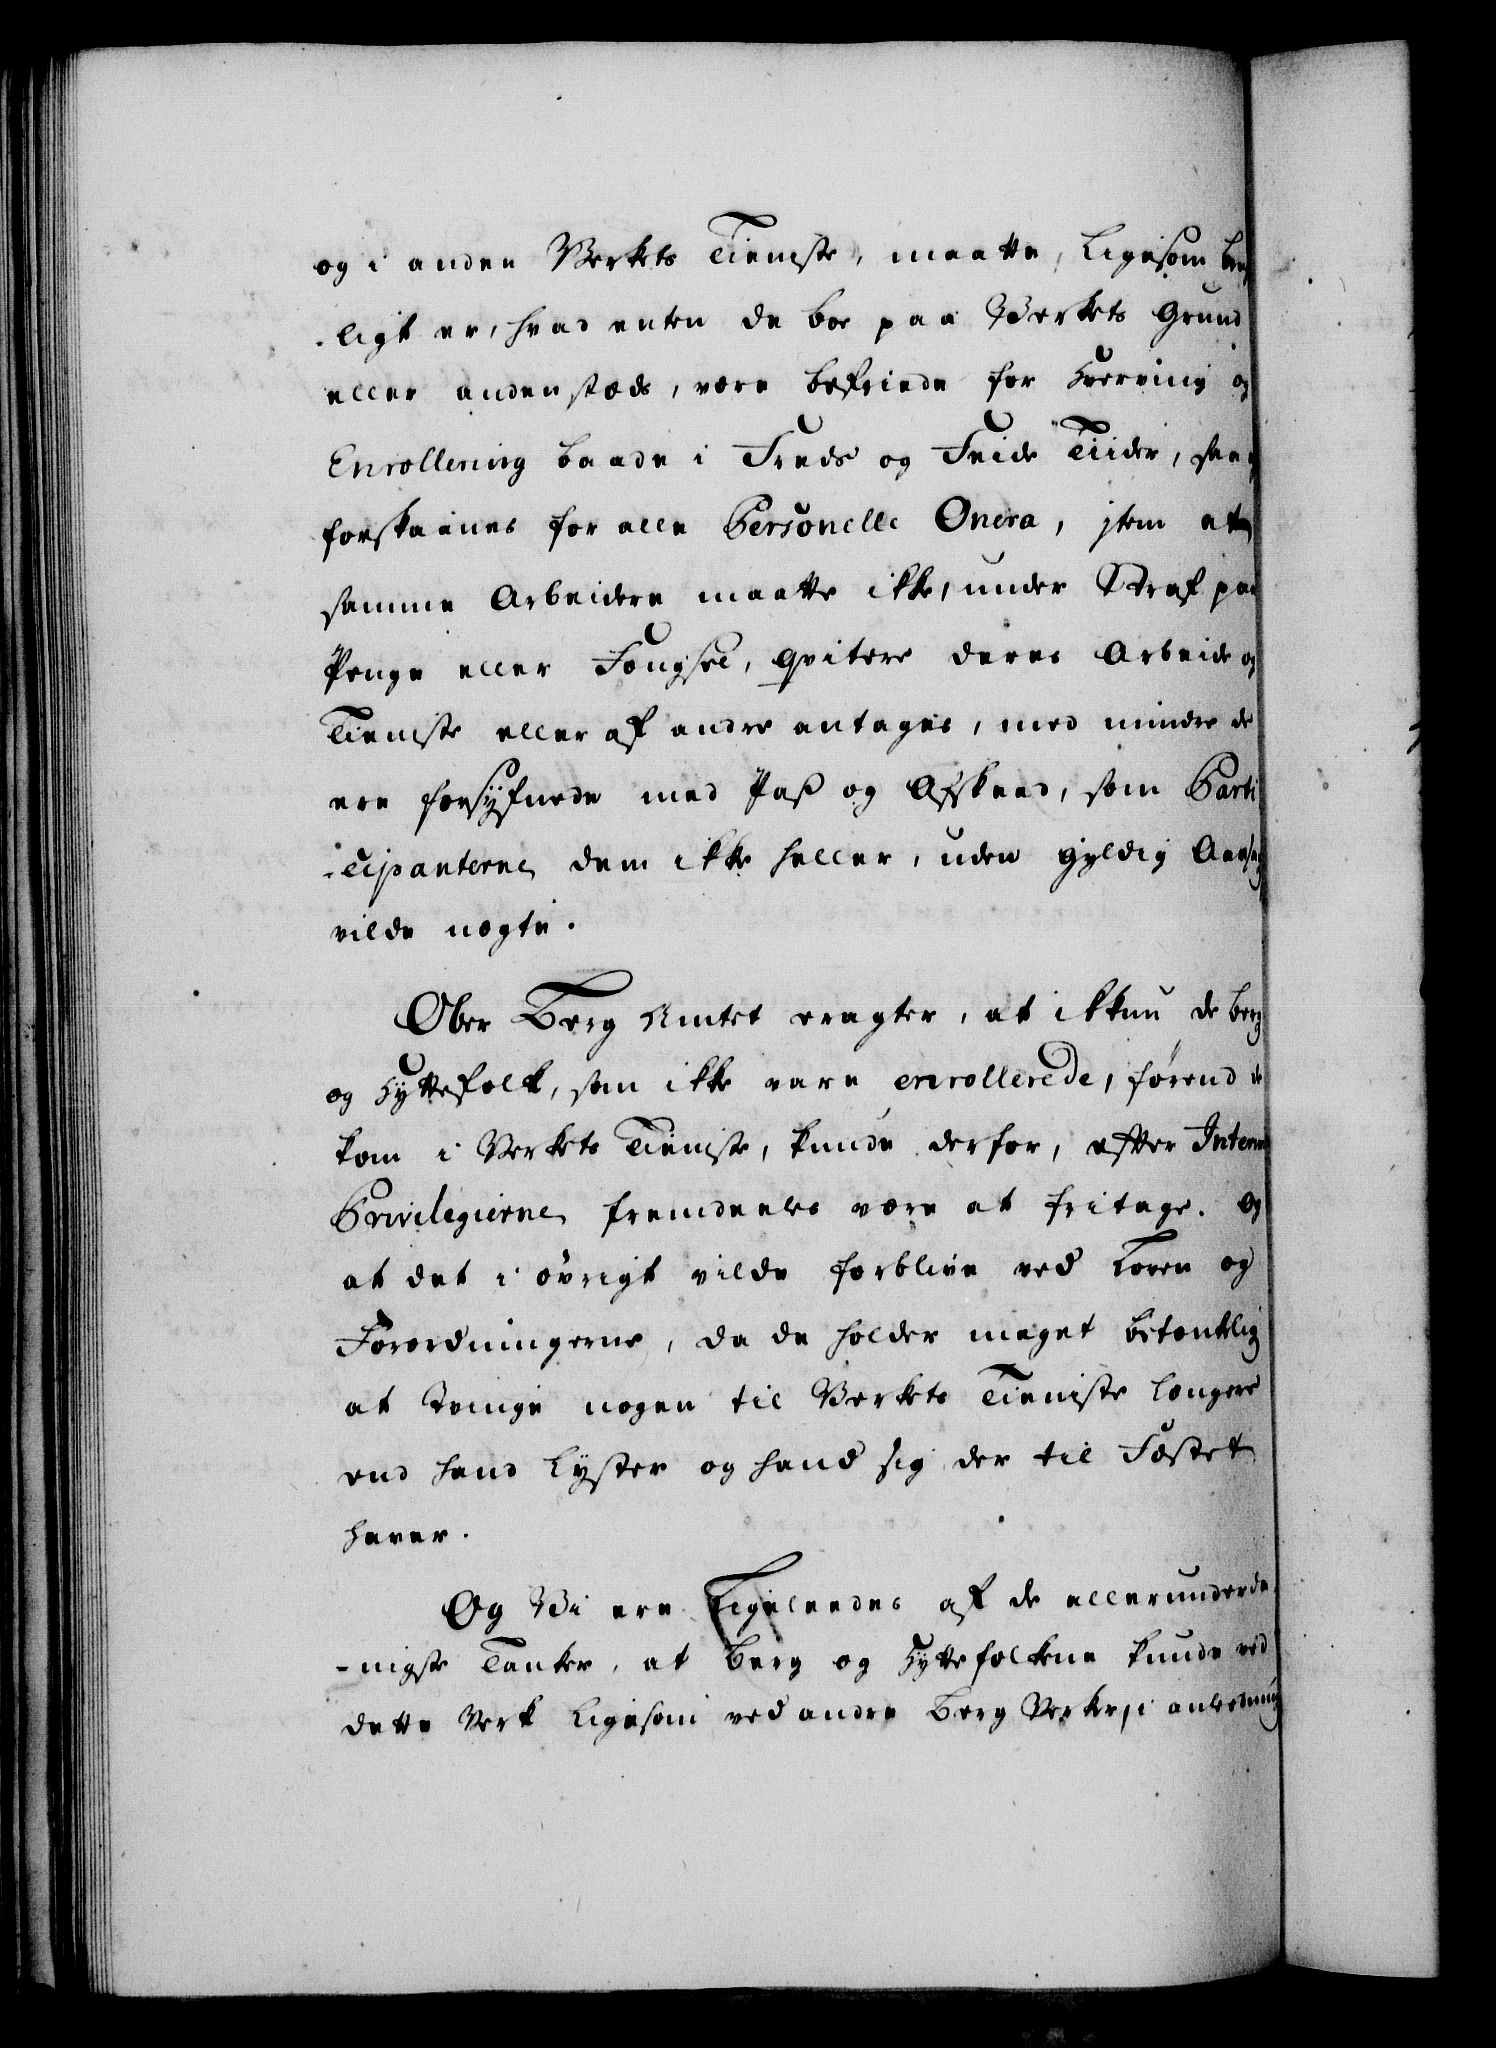 og i anden Verkets Tieniste, maatte, ligesom bru
-ligt er, hvad enten de boe paa Verkets Grund
eller andenstæds, være befriede for Hverving og
Enrollering baade i Freds og Feide Tiider, saa
forskaanes for alle Personelle Onera, jtem at
samme Arbeidere maatte ikke, under Straf paa
Penge eller Fængsel, qvitere deres Arbeide og
Tieniste eller af andre antages, med mindre de
ere forsÿnede med Pass og Afskeed, som Parti
-cipanterne dem ikke heller, uden gyldig Aarsag
vilde nægte.
Ober Berg Amtet eragter, at ikkun de berg
og Hyttefolk, som ikke vare enrollerede, førend de
kom i Verkets Tieniste, kunde derfor, efter
Privilegierne fremdeeles være at fritage. Og
at det i øvrigt vilde forblive ved Loven og
Forordningerne, da de holder meget betænkelig
at tvinge nogen til Verkets Tieniste længere
end hand lyster og hand sig der til Fæstet
haver.
Og Vi ere Ligeledes af de allerunderda
-nigste Tanker, at Berg og Hyttefolkene kunde ved
dette Verk ligesom ved andre Berg Verker, i anledning